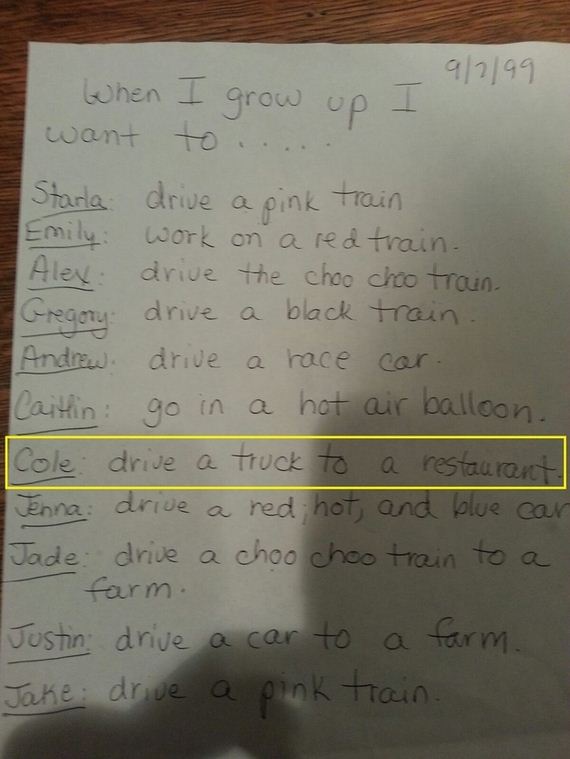 9/7/99
When I grow up I
want to .....
Starla: drive a pink train
Emily: work on a red train.
Alex: drive the choo choo train.
Gregory: drive a black train.
Andrew: drive a race car.
Caitlin: go in a hot air balloon.
Cole: drive a truck to a restaurant.
Jenna: drive a red, hot, and blue car
Jade: drive a choo choo train to a
farm.
Justin: drive a car to a farm.
Jake: drive a pink train.